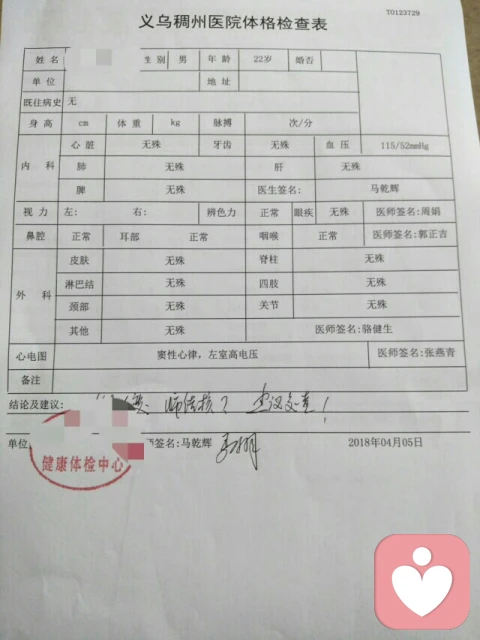 T0123729
义乌稠州医院体格检查表
姓名 性别 男 年龄 22岁 婚否
单位 地址
既往病史 无
身高 cm 体重 kg 脉搏 次/分
内科 心脏 无殊 牙齿 无殊 血压 115/52mmHg
肺 无殊 肝 无殊
脾 无殊 医生签名: 马乾辉
视力 左: 右: 辨色力 正常 眼疾 无殊 医师签名:周娟
鼻腔 正常 耳部 正常 咽喉 正常 医师签名:郭正吉
外科 皮肤 无殊 脊柱 无殊
淋巴结 无殊 四肢 无殊
颈部 无殊 关节 无殊
其他 无殊 医师签名:骆健生
心电图 窦性心律，左室高电压 医师签名:张燕青
备注
结论及建议: 肺结核? 建议复查!
单位 师签名:马乾辉 2018年04月05日
健康体检中心